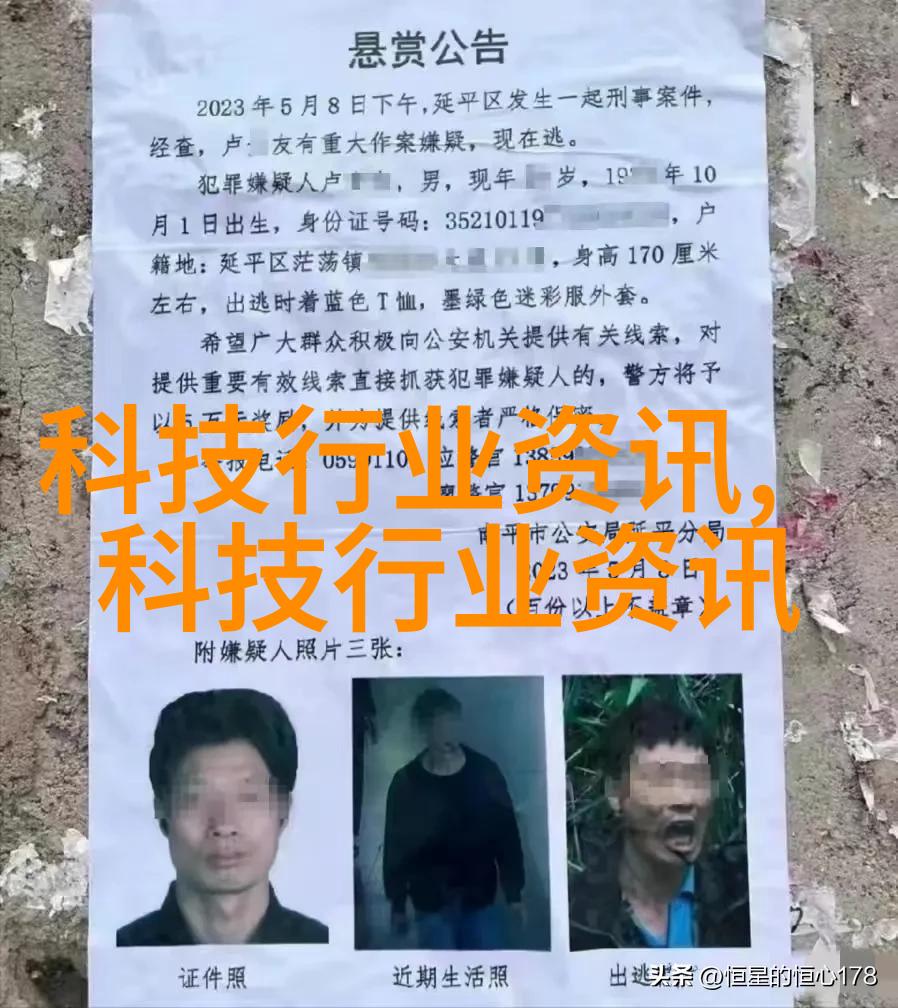 悬赏公告
2023年5月8日下午,延平区发生一起刑事案件,
经查,卢 友有重大作案嫌疑,现在逃。
犯罪嫌疑人卢 ,男,现年 岁,19 年10
月1日出生,身份证号码:35210119 ,户
籍地:延平区茫荡镇 ,身高170厘米
左右,出逃时着蓝色T恤,墨绿色迷彩服外套。
希望广大群众积极向公安机关提供有关线索,对
提供重要有效线索直接抓获犯罪嫌疑人的,警方将予
以5万元奖励,并为提供线索者严格保密。
科技行业资讯,
举报电话:0599110 应警官 13859
警官 13799
南平市公安局延平分局
科技行业资讯
2023年5月8日
(百份以上不盖章)
附嫌疑人照片三张:
证件照
近期生活照
出逃
头条 @恒星的恒心178